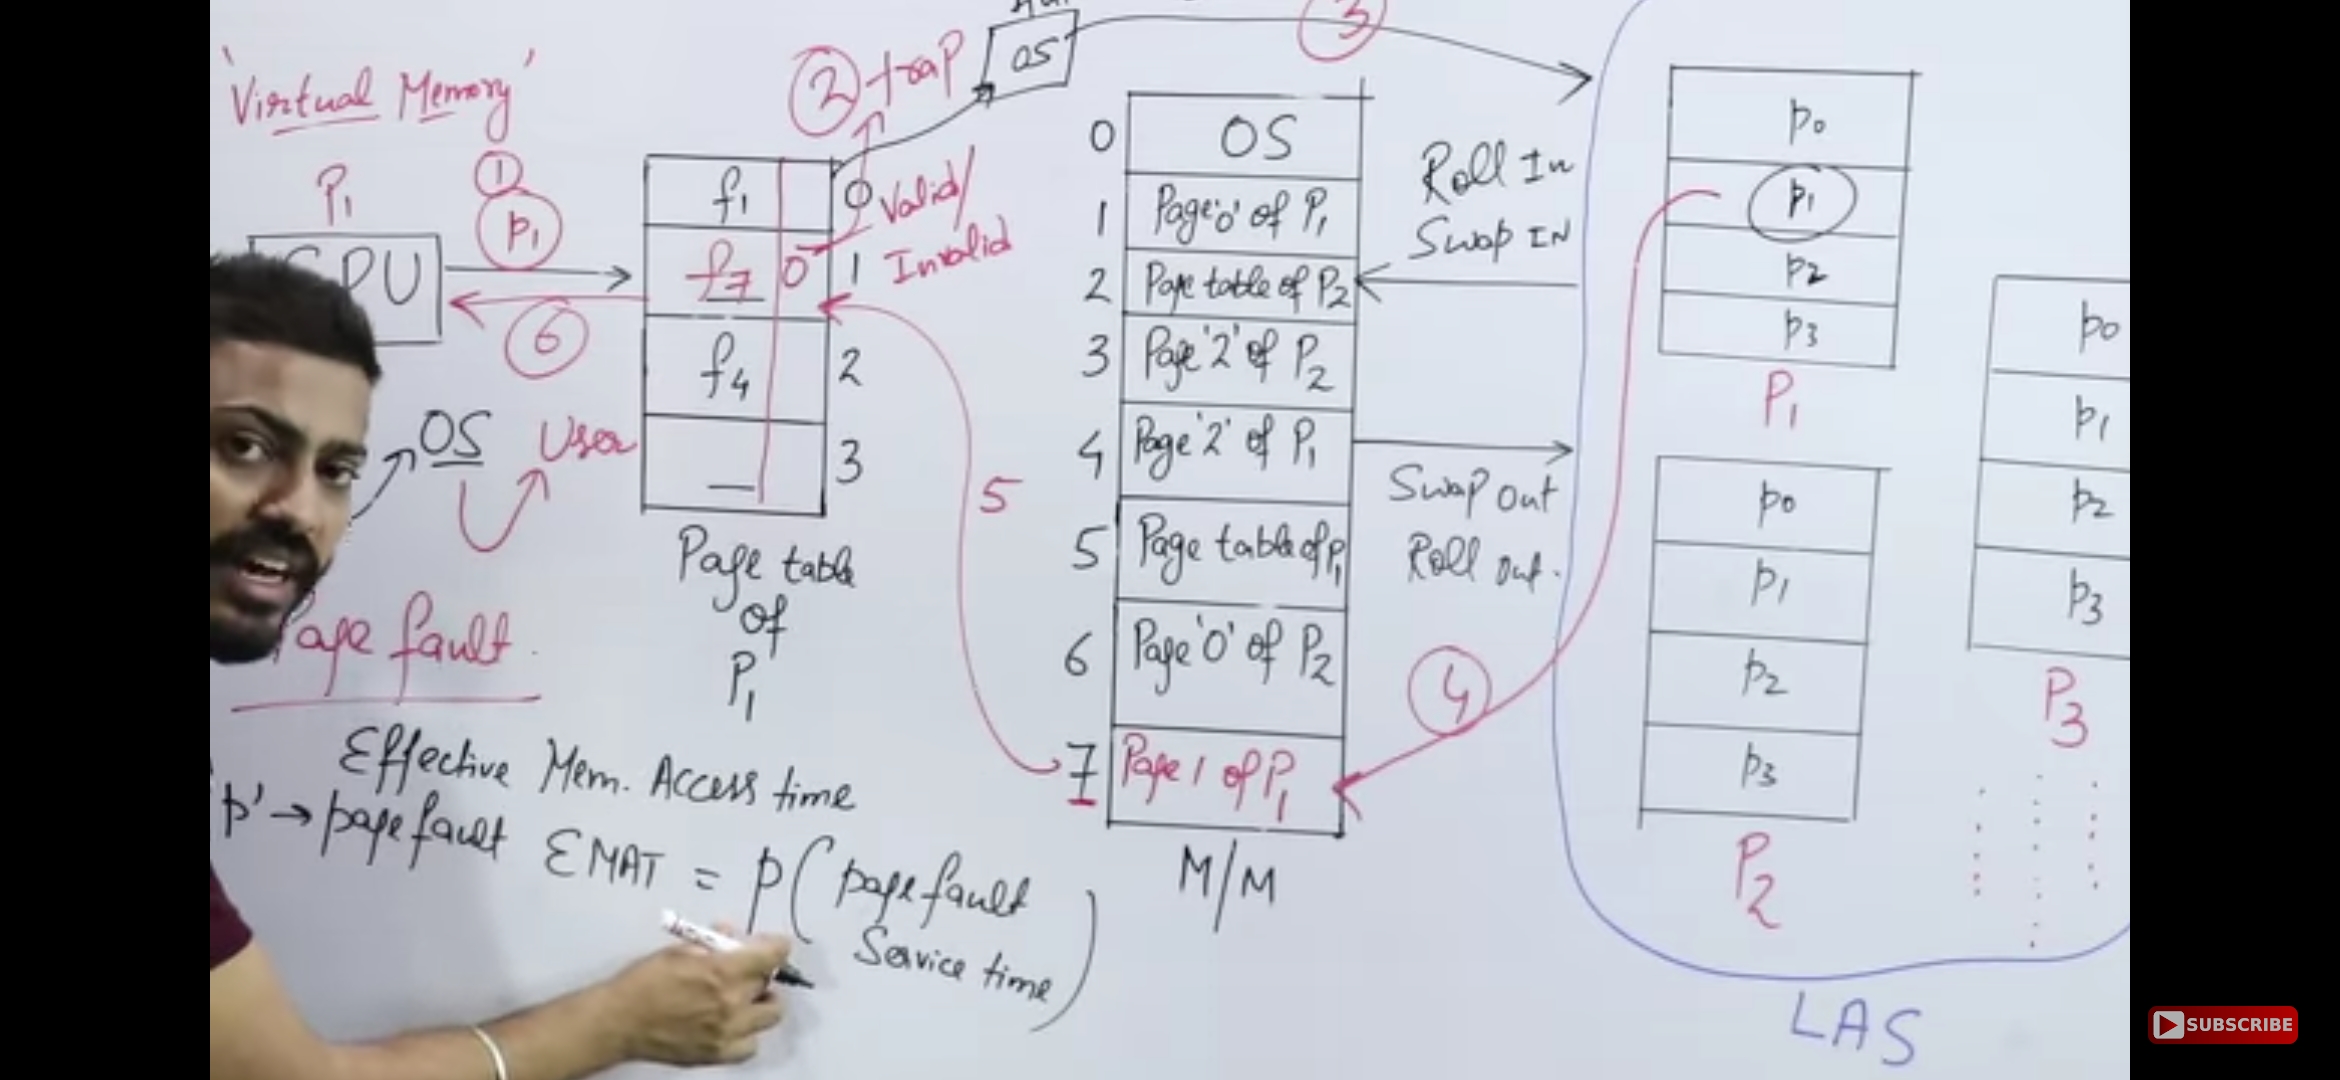 'Virtual Memory'
P1
①
p1
CPU
⑥
OS
User
Page fault
② trap
OS
③
f1 0
f7 0 1
f4 2
— 3
Valid/
Invalid
Page table
of
P1
5
0 OS
1 Page '0' of P1
2 Page table of P2
3 Page '2' of P2
4 Page '2' of P1
5 Page table of P1
6 Page '0' of P2
7 Page 1 of P1
M/M
Roll In
Swap IN
Swap Out
Roll Out.
④
p0
p1
p2
p3
P1
p0
p1
p2
p3
P2
p0
p1
p2
p3
P3
LAS
Effective Mem. Access time
'p' → page fault
EMAT = p(page fault
Service time)
SUBSCRIBE